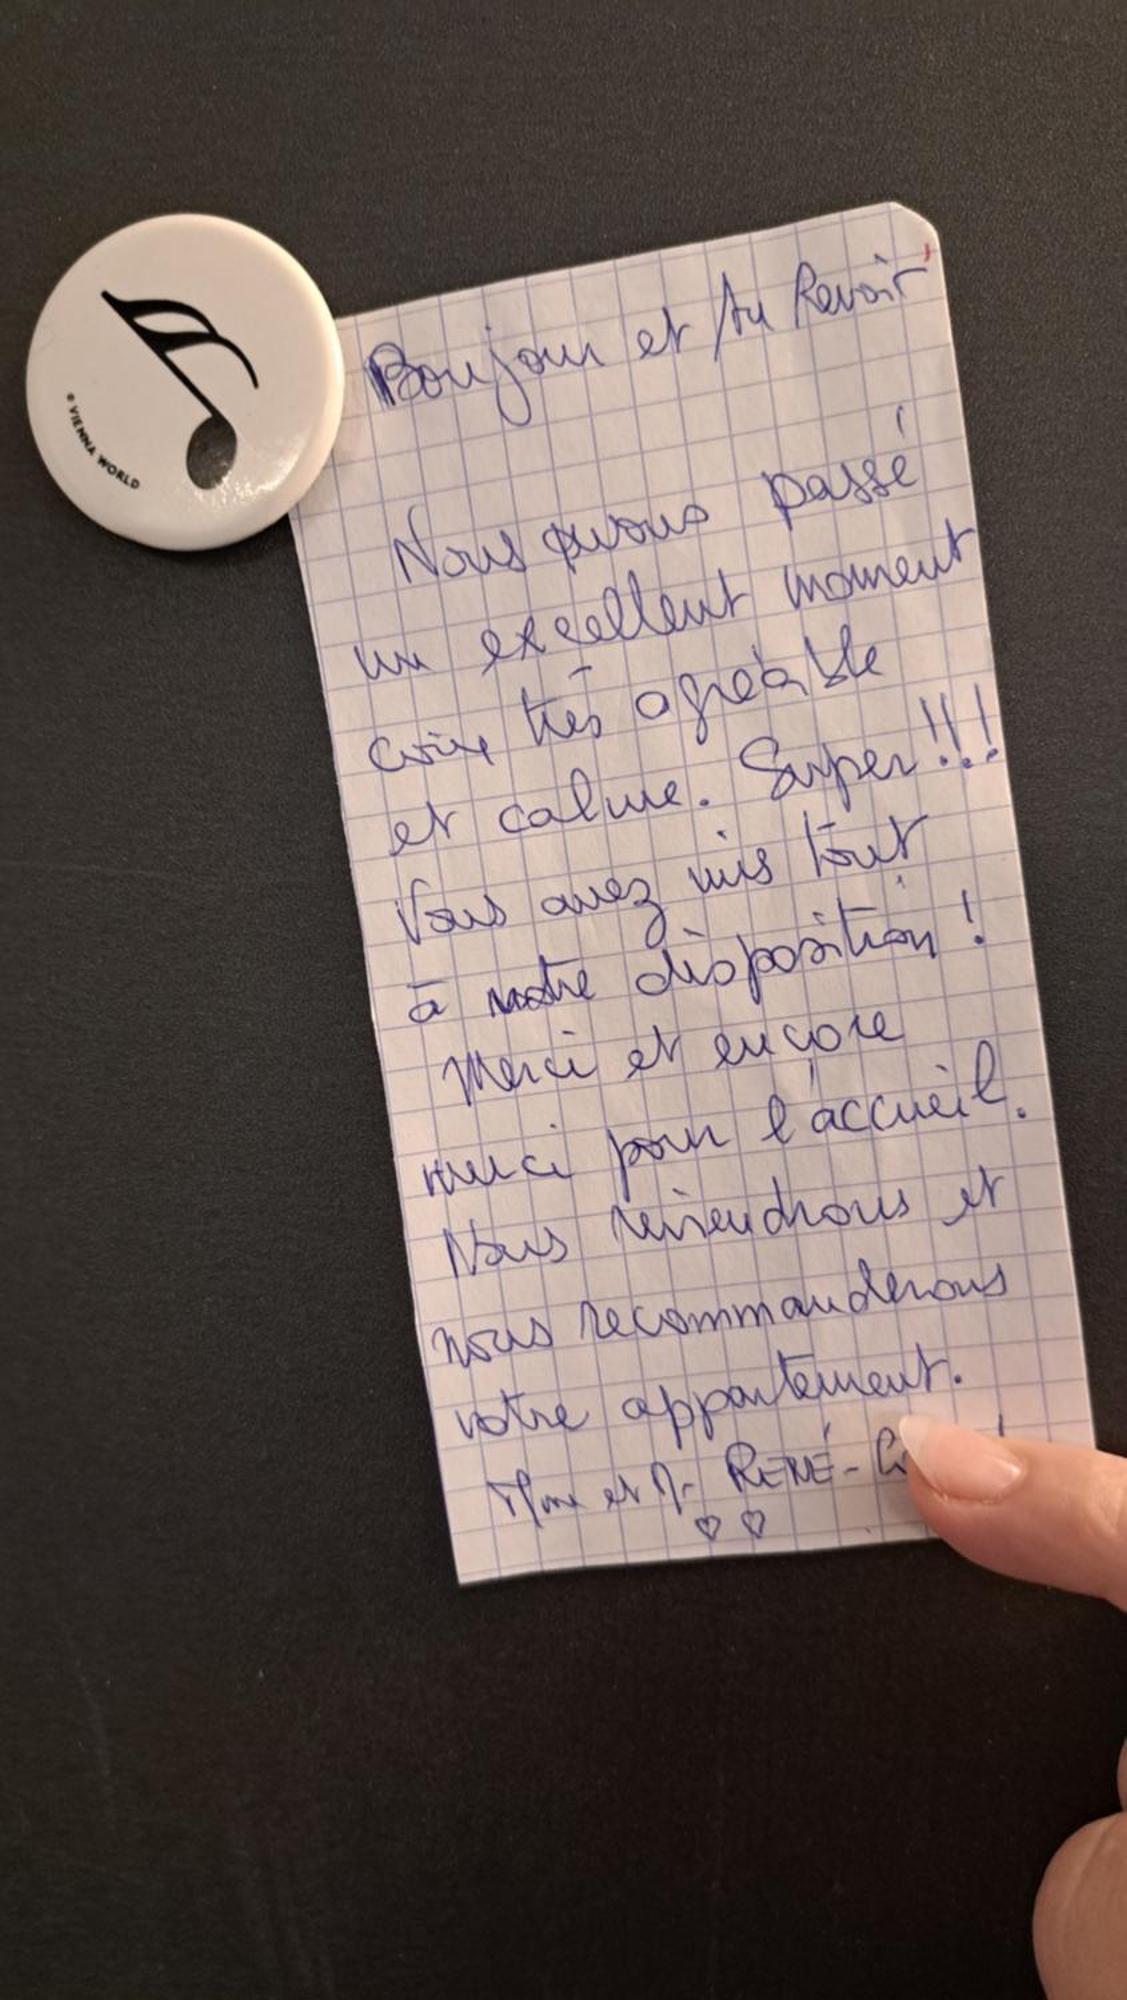 © VIENNA WORLD
Bonjour et Au Revoir
Nous avons passé
un excellent moment
très agréable
et calme. Super!!!
Vous avez mis tout
à notre disposition !
Merci et encore
merci pour l'accueil.
Nous reviendrons et
nous recommanderons
votre appartement.
Mme et Mr RENÉ-